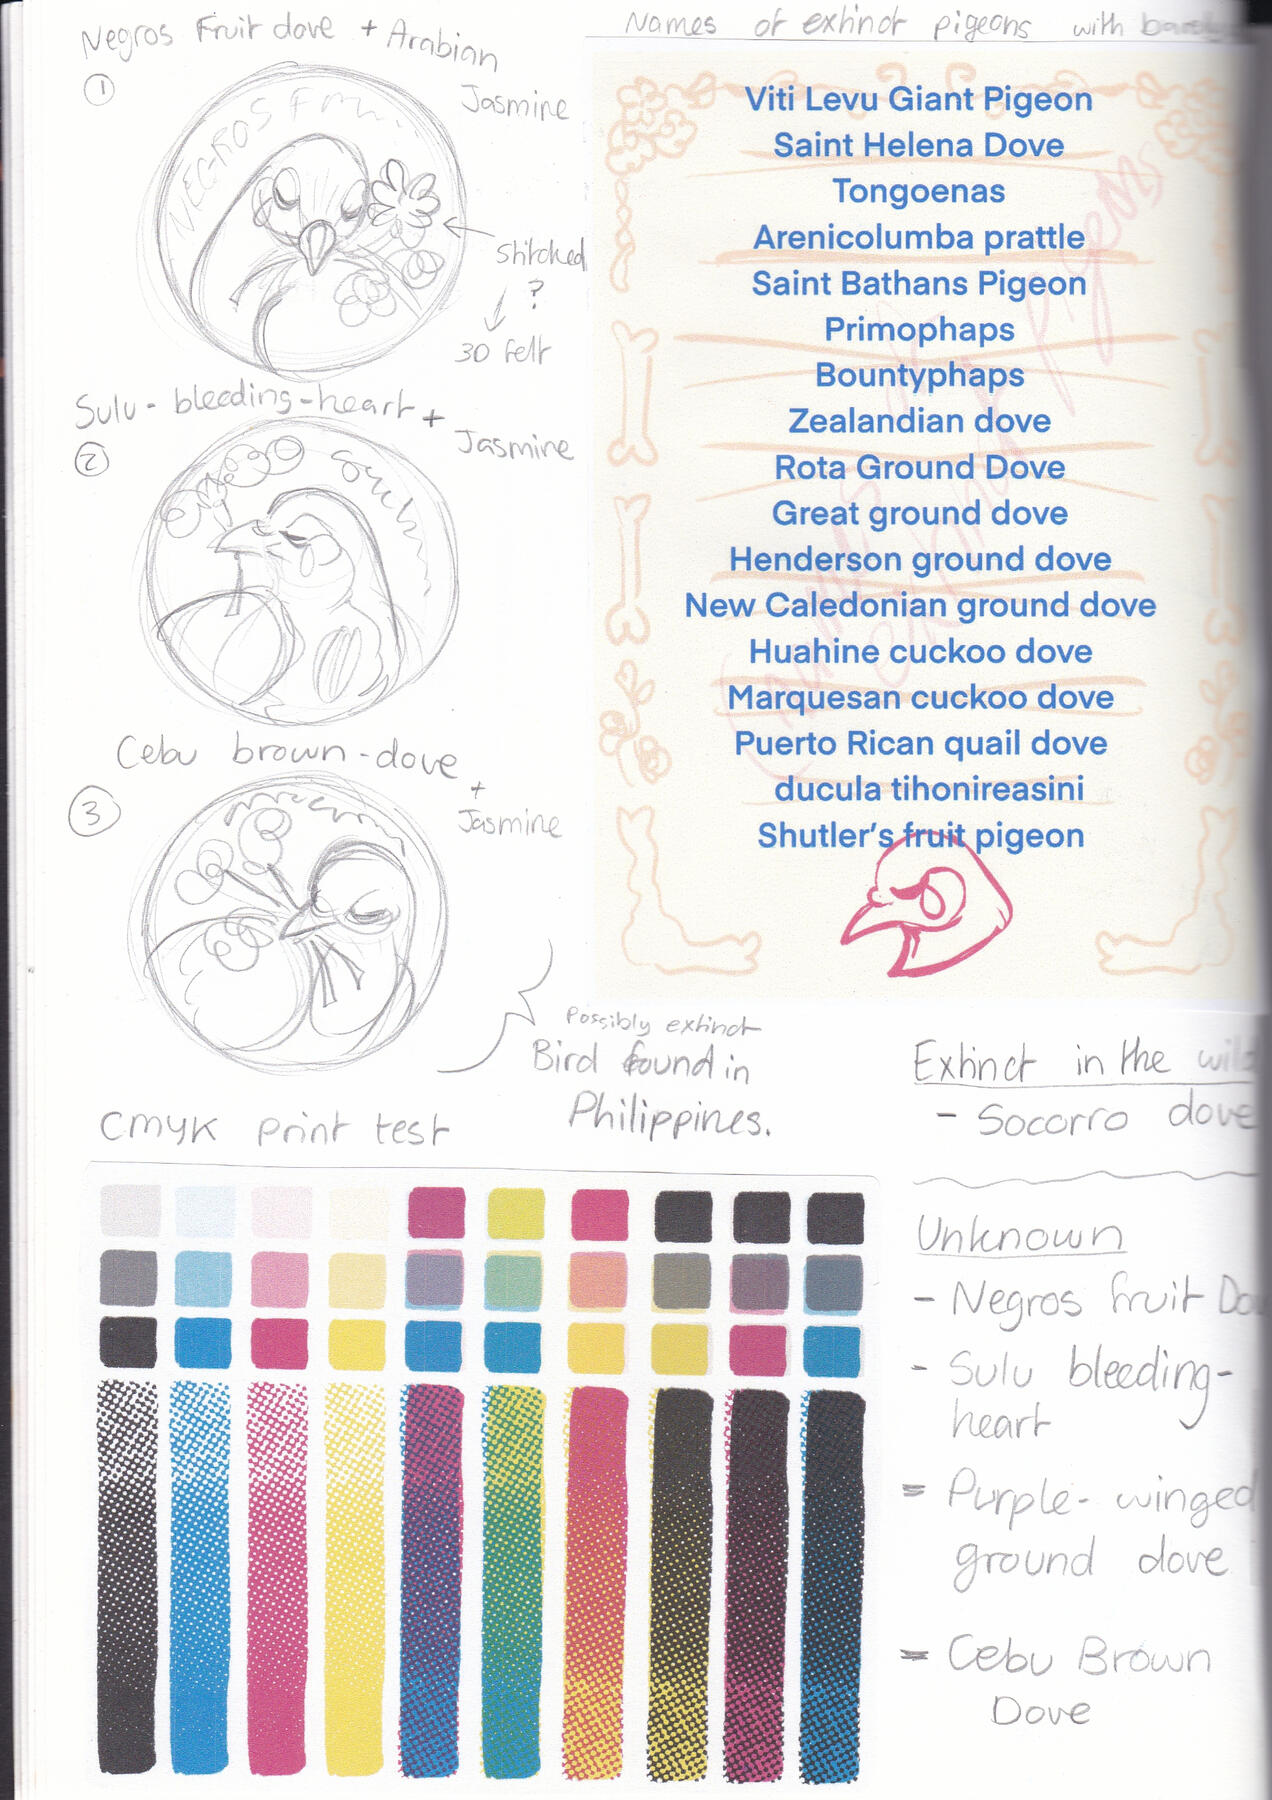 Negros Fruit dove + Arabian
Jasmine
1
NEGROS
stitched
?
3D felt
Sulu - bleeding - heart +
Jasmine
2
Cebu brown - dove
+
Jasmine
3
Possibly extinct
Bird found in
Philippines.
Names of extinct pigeons with
Viti Levu Giant Pigeon
Saint Helena Dove
Tongoenas
Arenicolumba prattle
Saint Bathans Pigeon
Primophaps
Bountyphaps
Zealandian dove
Rota Ground Dove
Great ground dove
Henderson ground dove
New Caledonian ground dove
Huahine cuckoo dove
Marquesan cuckoo dove
Puerto Rican quail dove
ducula tihonireasini
Shutler's fruit pigeon
Extinct in the wild
- Socorro dove
CMYK print test
Unknown
- Negros fruit Do
- Sulu bleeding-
heart
= Purple- winged
ground dove
= Cebu Brown
Dove